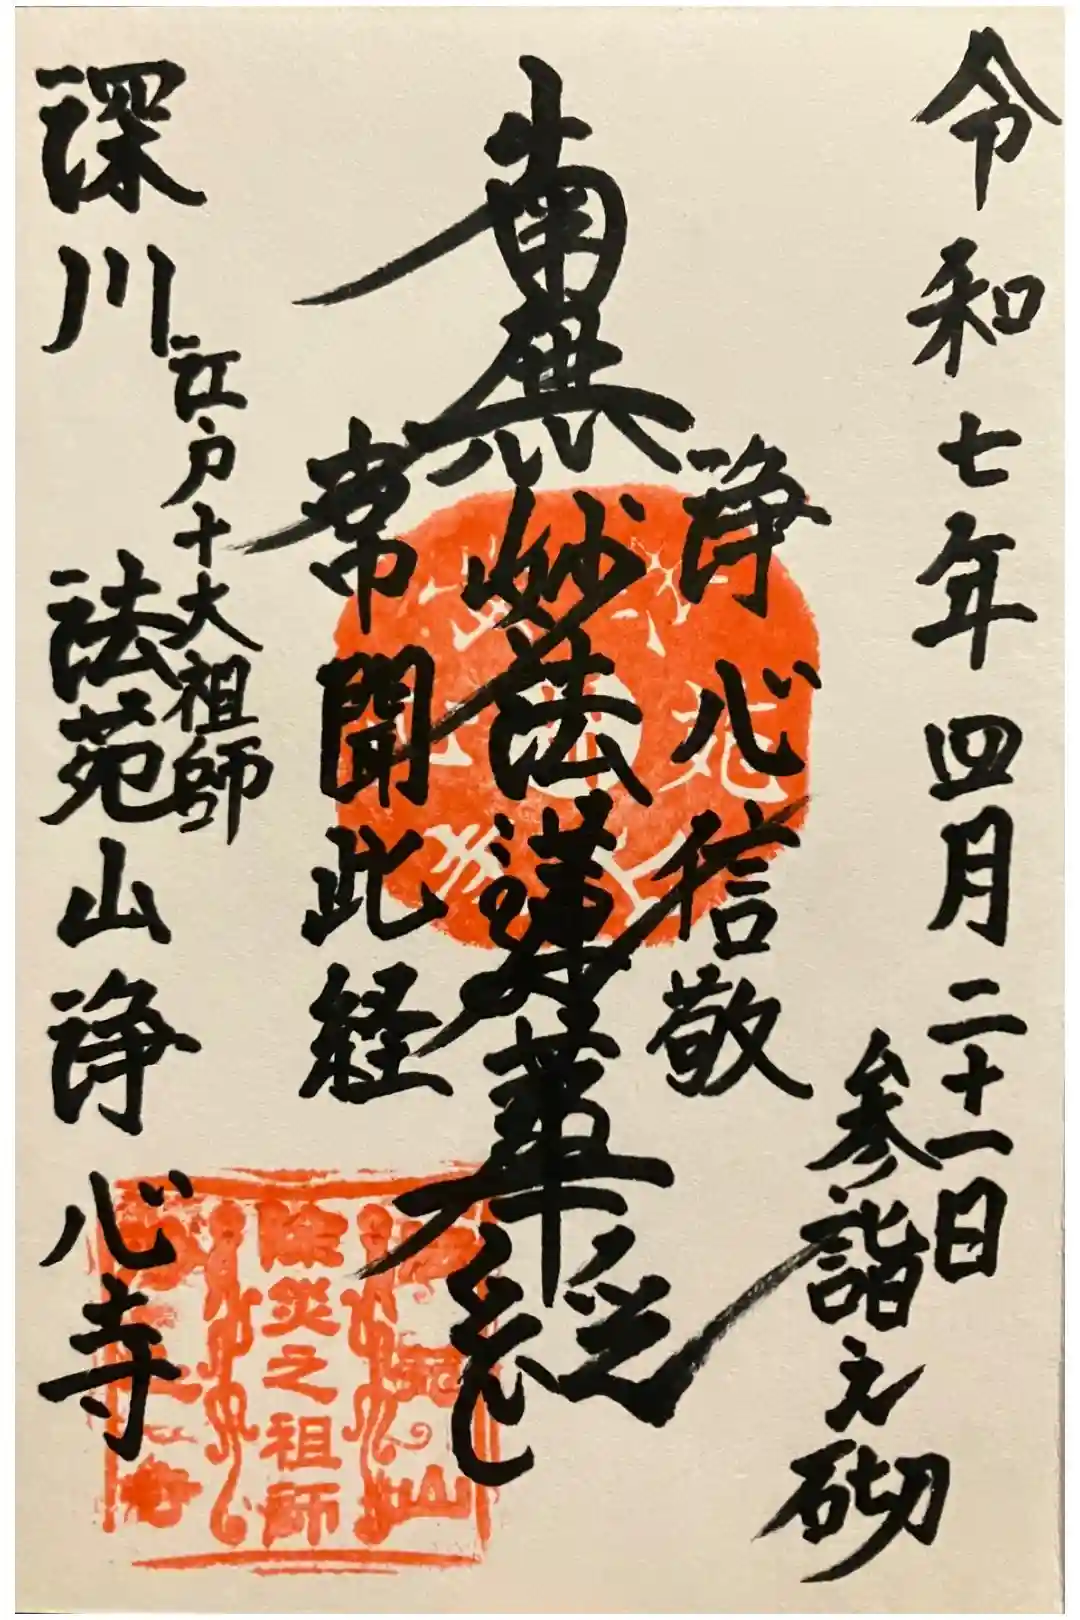 令和七年四月二十一日
参詣之砌
浄心信敬
南無妙法蓮華経
常聞此経
江戸十大祖師
深川 法苑山浄心寺
除災之祖師